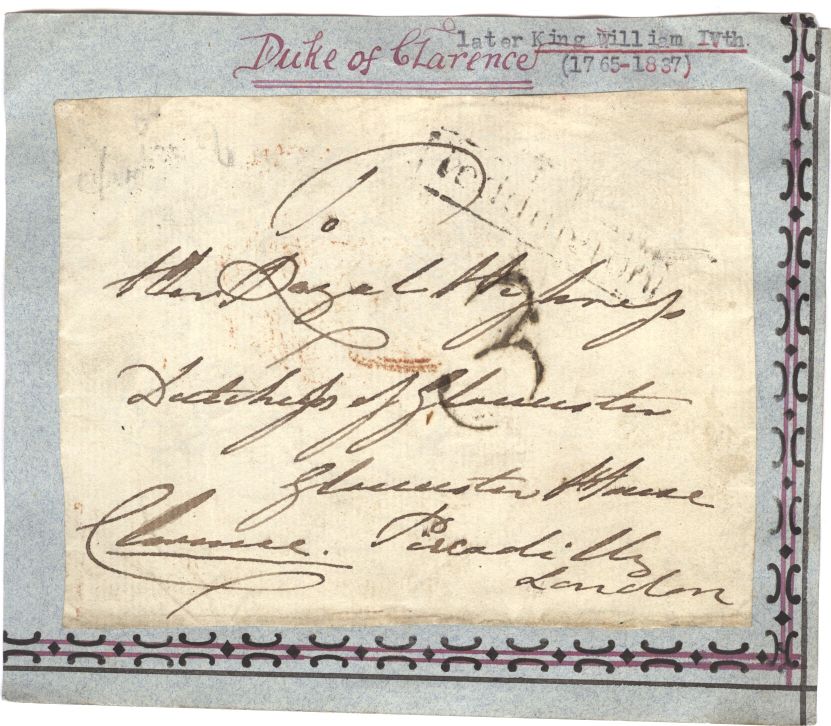 Duke of Clarence later King William IVth.
(1765-1837)
To
Her Royal Highness
Dutchess of Gloucester
3
Gloucester House
Clarence. Piccadilly
London